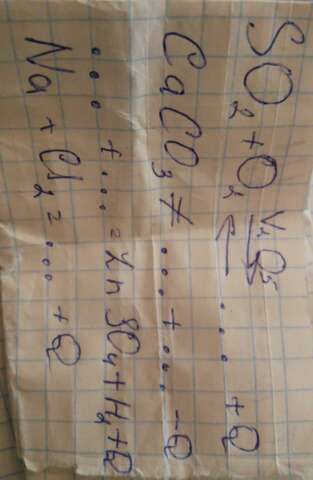 SO₂ + O₂ V₂O₅ ⇄ .... + Q
CaCO₃ ≠ ... + ... - Q
.... + ... = ZnSO₄ + H₂ + Q
Na + Cl₂ = ... + Q